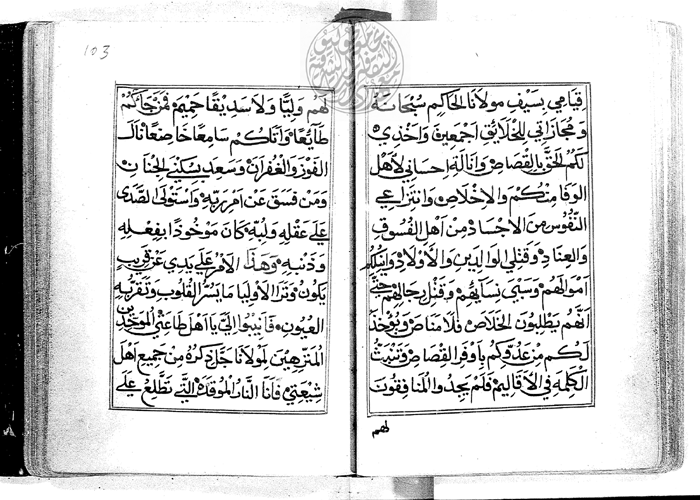 قيامي بسيف مولانا الحاكم سبحانه
ومجازاتي للخلايق اجمعين واخذي
لكم الحق بالقصاص وانالة احساني لاهل
الوفا منكم والاخلاص وانتزاعي
النفوس من الاجساد من اهل الفسوق
والعناد وقتلي الوالدين والاولاد وانيلكم
اموالهم وسبي نسايهم وقتل رجالهم حتى
انهم يطلبون الخلاص فلا مناص ويوخذ
لكم من عدوكم باوفر القصاص وتثبت
الكلمه في الاقاليم فلم يجدوا المنافقون
لهم
103
لهم وليا ولا سديقا حميم فمن جاكم
طايعا واتاكم سامعا خاضعا نال
الفوز والغفران وسعد بسكني الجنان
ومن فسق عن امر ربه واستولى الصدى
على عقله ولبه كان موخودا بفعله
وذنبه وهذا الامر على يدي عن قريب
يكون وترا الاوليا ما يسر القلوب وتقر به
العيون فانيبوا الي يا اهل طاعتي الموحدين
المنزهين لمولانا جل ذكره من جميع اهل
شيعتي فانا النار الموقدة التي تطلع على